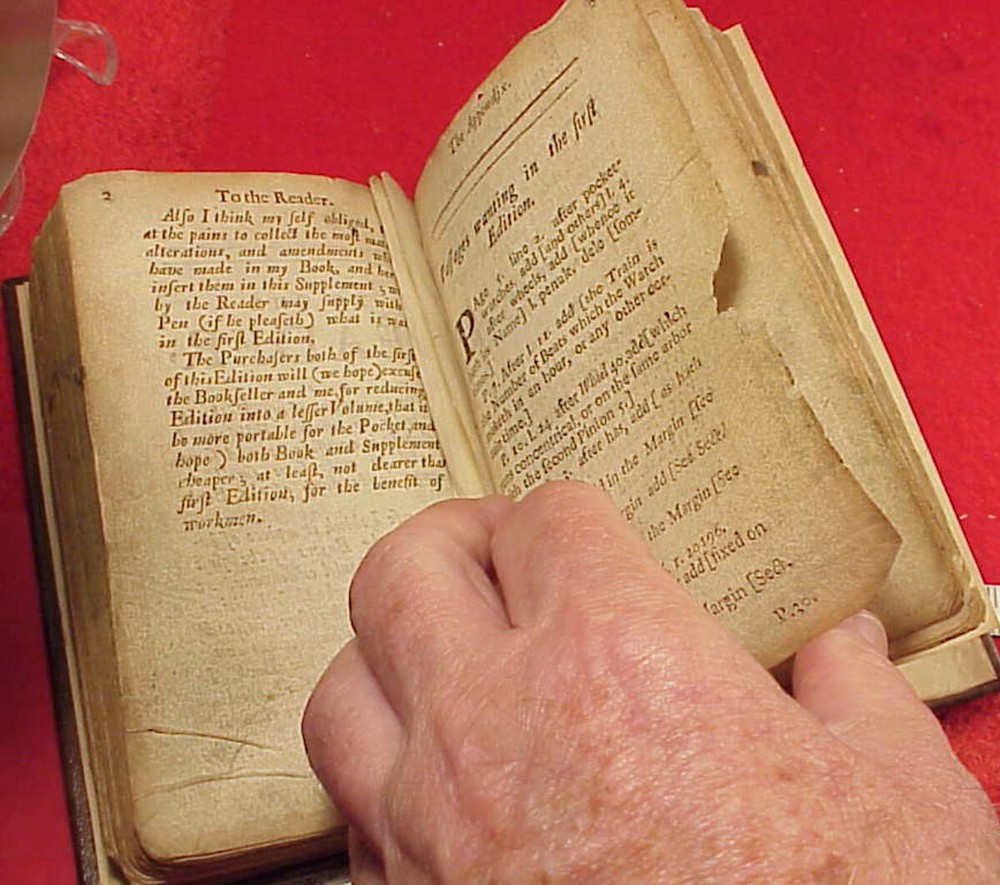 2
To the Reader.
Alſo I think my ſelf obliged,
at the pains to collect the moſt
alterations, and amendments
have made in my Book, and
inſert them in this Supplement ;
by the Reader may ſupply with
Pen (if he pleaſeth) what is
in the firſt Edition.
The Purchaſers both of the firſt
of this Edition will (we hope) excuſe
the Bookſeller and me, for reducing
Edition into a leſſer Volume, that it
be more portable for the Pocket, and
hope ) both Book and Supplement
cheaper ; at leaſt, not dearer
firſt Edition, for the benefit of
workmen.
The Appendix.
wanting in the firſt
Edition.
PAge 5. line 2. after pocket-
watches, add [and others] l. 4.
after wheels, add [whence it
Name] l. penult. dele [ſom-
After l. 11. add [the Train
Number of Beats which the Watch
in an hour, or any other
time.]
P. 10. l. 24. after add [which
concentrical, or on the ſame arbor
the ſecond Pinion 5.]
after has, add [ as hath
in the Margin [ſee
add [See
the Margin [See
20196.
add [fixed on
Margin [See
P. 20.